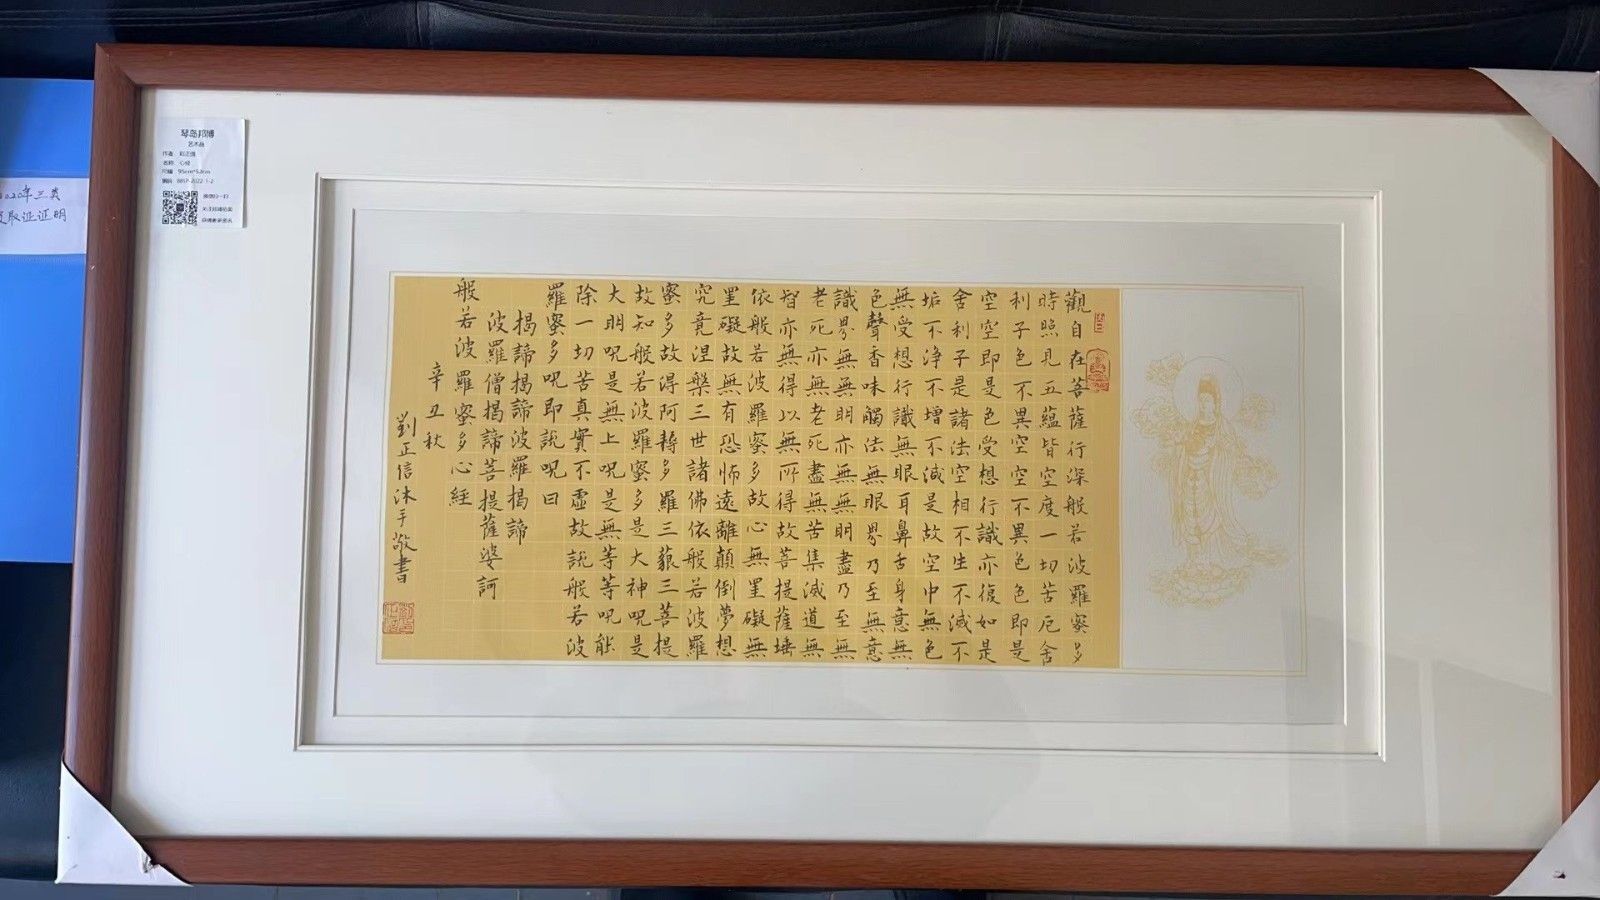 觀自在菩薩行深般若波羅蜜多
時照見五蘊皆空度一切苦厄舍
利子色不異空空不異色色即是
空空即是色受想行識亦復如是
舍利子是諸法空相不生不滅不
垢不淨不增不減是故空中無色
無受想行識無眼耳鼻舌身意無
色聲香味觸法無眼界乃至無意
識界無無明亦無無明盡乃至無
老死亦無老死盡無苦集滅道無
智亦無得以無所得故菩提薩埵
依般若波羅蜜多故心無罣礙無
罣礙故無有恐怖遠離顛倒夢想
究竟涅槃三世諸佛依般若波羅
蜜多故得阿耨多羅三藐三菩提
故知般若波羅蜜多是大神呪是
大明呪是無上呪是無等等呪能
除一切苦真實不虛故說般若波
羅蜜多呪即說呪曰
揭諦揭諦波羅揭諦
波羅僧揭諦菩提薩婆訶
般若波羅蜜多心經
辛丑秋
劉正信沐手敬書
琴岛邦博
艺术品
作者 刘正信
名称 心经
2020年三类
取证证明